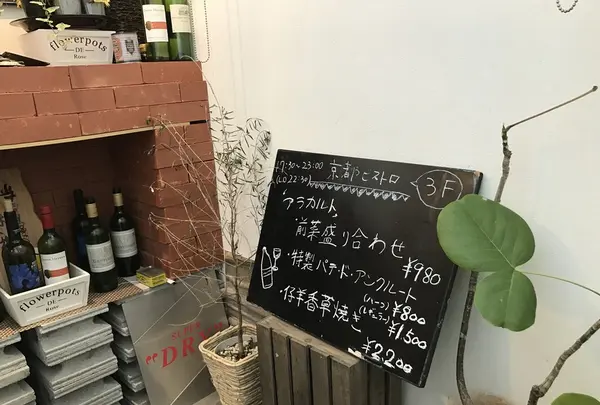 flowerpots
DE
Rose
17:30~23:00 京都ビストロ
(LO 22:30)
3F
アラカルト
前菜盛り合わせ
¥980
・特製パテ・ド・アンクルート
(ハーフ) ¥800
(レギュラー) ¥1,500
・仔羊香草焼き
¥2200
flowerpots
DE
Rose
SUPER
"DR